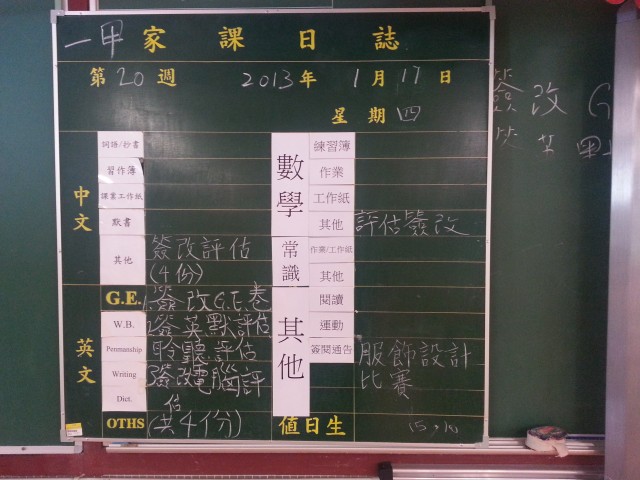 一甲家課日誌
第20週 2013年1月17日
星期四
中文
詞語/抄書
習作簿
課業工作紙
默書
其他 簽改評估
(4份)
英文
G.E. 1.簽改G.E.卷
W.B. 2簽英默評估
Penmanship 聆聽評估
Writing 3簽改電腦評
Dict. 估
OTHS (共4份)
數學
練習簿
作業
工作紙
其他 評估簽改
常識
作業/工作紙
其他
其他
閱讀
運動
簽閱通告 服飾設計
比賽
值日生 15,16
簽改 G